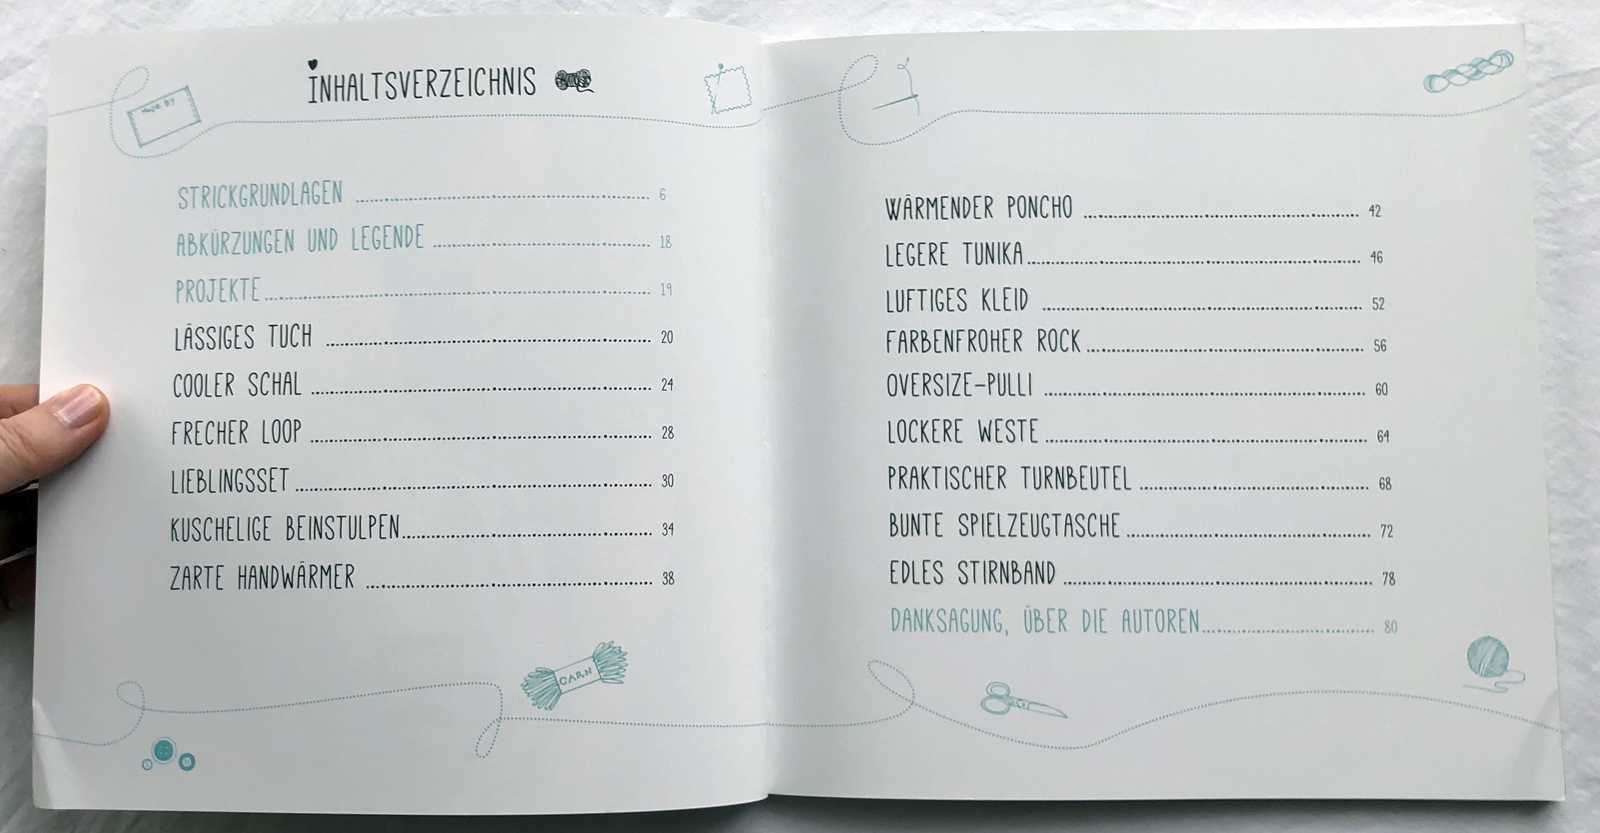 INHALTSVERZEICHNIS
MADE BY
STRICKGRUNDLAGEN 6
ABKÜRZUNGEN UND LEGENDE 18
PROJEKTE 19
LÄSSIGES TUCH 20
COOLER SCHAL 24
FRECHER LOOP 28
LIEBLINGSSET 30
KUSCHELIGE BEINSTULPEN 34
ZARTE HANDWÄRMER 38
GARN
WÄRMENDER PONCHO 42
LEGERE TUNIKA 46
LUFTIGES KLEID 52
FARBENFROHER ROCK 56
OVERSIZE-PULLI 60
LOCKERE WESTE 64
PRAKTISCHER TURNBEUTEL 68
BUNTE SPIELZEUGTASCHE 72
EDLES STIRNBAND 78
DANKSAGUNG, ÜBER DIE AUTOREN 80